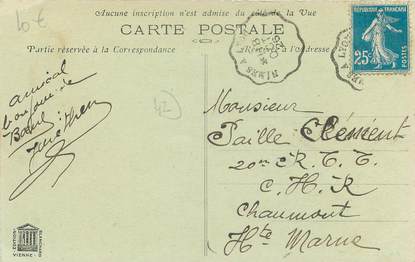 10€
Aucune inscription n'est admise du côté de la Vue
CARTE POSTALE
Partie réservée à la Correspondance
Réservée à l'adresse
RÉPUBLIQUE FRANÇAISE
25c
POSTES
NIMES A
LYON
amical
bonjour de
42
Monsieur
Paille Clément
20me C. R. T. T.
C. H. R
Chaumont
Hte Marne
EDITION
VIENNE